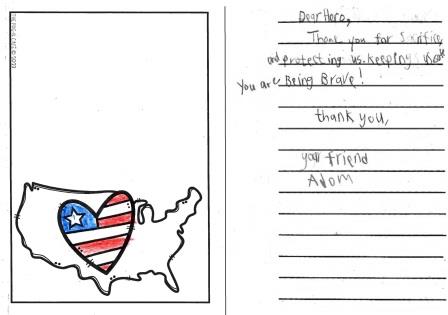 Dear Hero,
Thank you for
and protesting us. keeping us safe
You are Being Brave!
thank you,
your friend
Adom